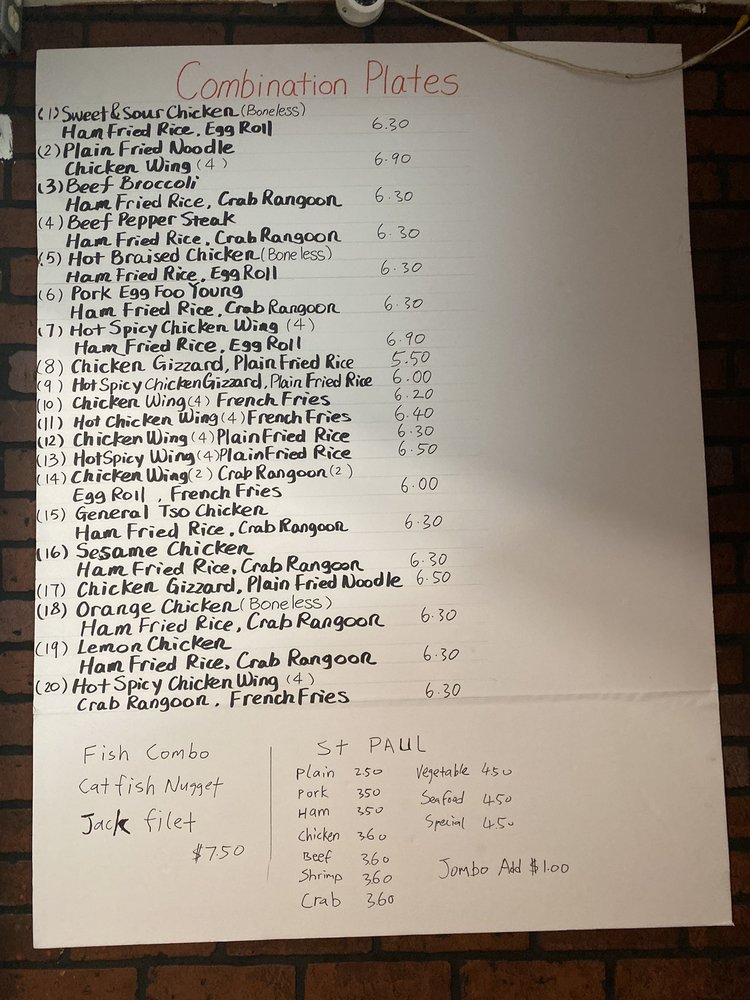 Combination Plates
(1) Sweet & Sour Chicken (Boneless)
Ham Fried Rice, Egg Roll 6.30
(2) Plain Fried Noodle
Chicken Wing (4) 6.90
(3) Beef Broccoli
Ham Fried Rice, Crab Rangoon 6.30
(4) Beef Pepper Steak
Ham Fried Rice, Crab Rangoon 6.30
(5) Hot Braised Chicken (Boneless)
Ham Fried Rice, Egg Roll 6.30
(6) Pork Egg Foo Young
Ham Fried Rice, Crab Rangoon 6.30
(7) Hot Spicy Chicken Wing (4)
Ham Fried Rice, Egg Roll 6.90
(8) Chicken Gizzard, Plain Fried Rice 5.50
(9) Hot Spicy Chicken Gizzard, Plain Fried Rice 6.00
(10) Chicken Wing (4) French Fries 6.20
(11) Hot Chicken Wing (4) French Fries 6.40
(12) Chicken Wing (4) Plain Fried Rice 6.30
(13) Hot Spicy Wing (4) Plain Fried Rice 6.50
(14) Chicken Wing (2) Crab Rangoon (2)
Egg Roll, French Fries 6.00
(15) General Tso Chicken
Ham Fried Rice, Crab Rangoon 6.30
(16) Sesame Chicken
Ham Fried Rice, Crab Rangoon 6.30
(17) Chicken Gizzard, Plain Fried Noodle 6.50
(18) Orange Chicken (Boneless)
Ham Fried Rice, Crab Rangoon 6.30
(19) Lemon Chicken
Ham Fried Rice, Crab Rangoon 6.30
(20) Hot Spicy Chicken Wing (4)
Crab Rangoon, French Fries 6.30
Fish Combo
Catfish Nugget
Jack filet
$7.50
St PAUL
Plain 250
Pork 350
Ham 350
Chicken 360
Beef 360
Shrimp 360
Crab 360
Vegetable 450
Seafood 450
Special 450
Jombo Add $1.00